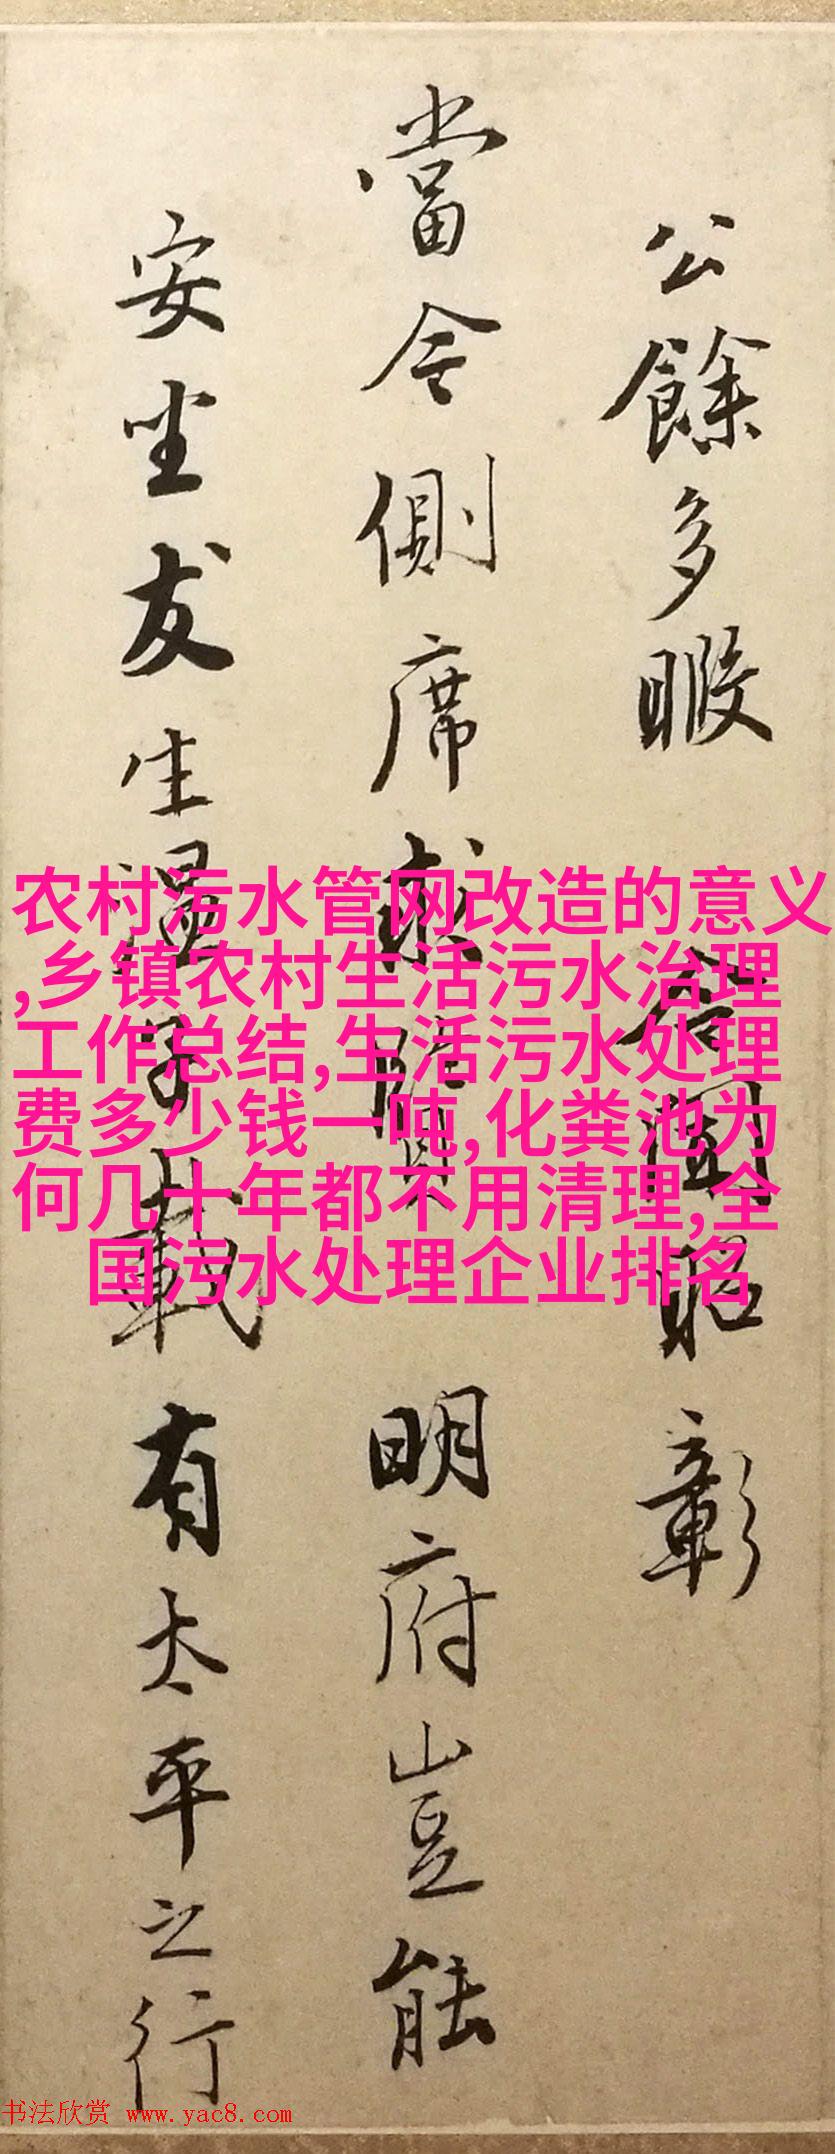 公餘多暇 合圖昭彰
當今側席求賢 明府豈能
安坐友生溫 載有太平之行
农村污水管网改造的意义
,乡镇农村生活污水治理
工作总结,生活污水处理
费多少钱一吨,化粪池为
何几十年都不用清理,全
国污水处理企业排名
书法欣赏 www.yac8.com